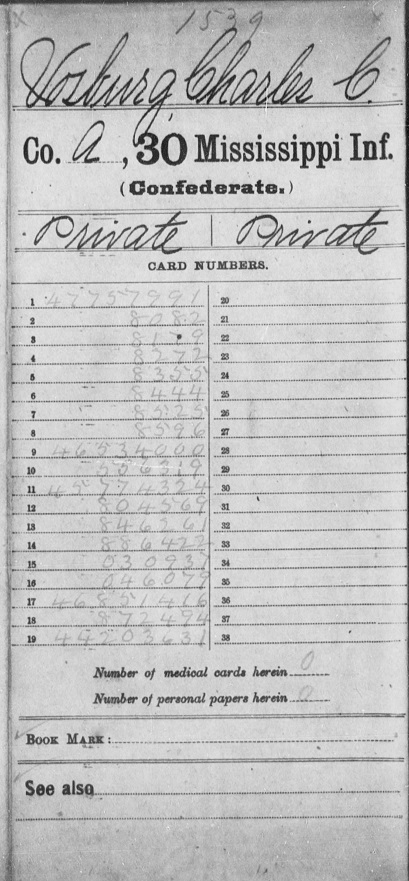 1539
Vosburg Charles C.
Co. A, 30 Mississippi Inf.
(Confederate.)
Private | Private
CARD NUMBERS.
1 47757991 20
2 8082 21
3 8179 22
4 8272 23
5 8355 24
6 8444 25
7 8525 26
8 8596 27
9 46534000 28
10 556319 29
11 45774324 30
12 804569 31
13 846261 32
14 886422 33
15 030937 34
16 046079 35
17 46851416 36
18 872494 37
19 44203631 38
Number of medical cards herein 0
Number of personal papers herein 0
BOOK MARK:
See also